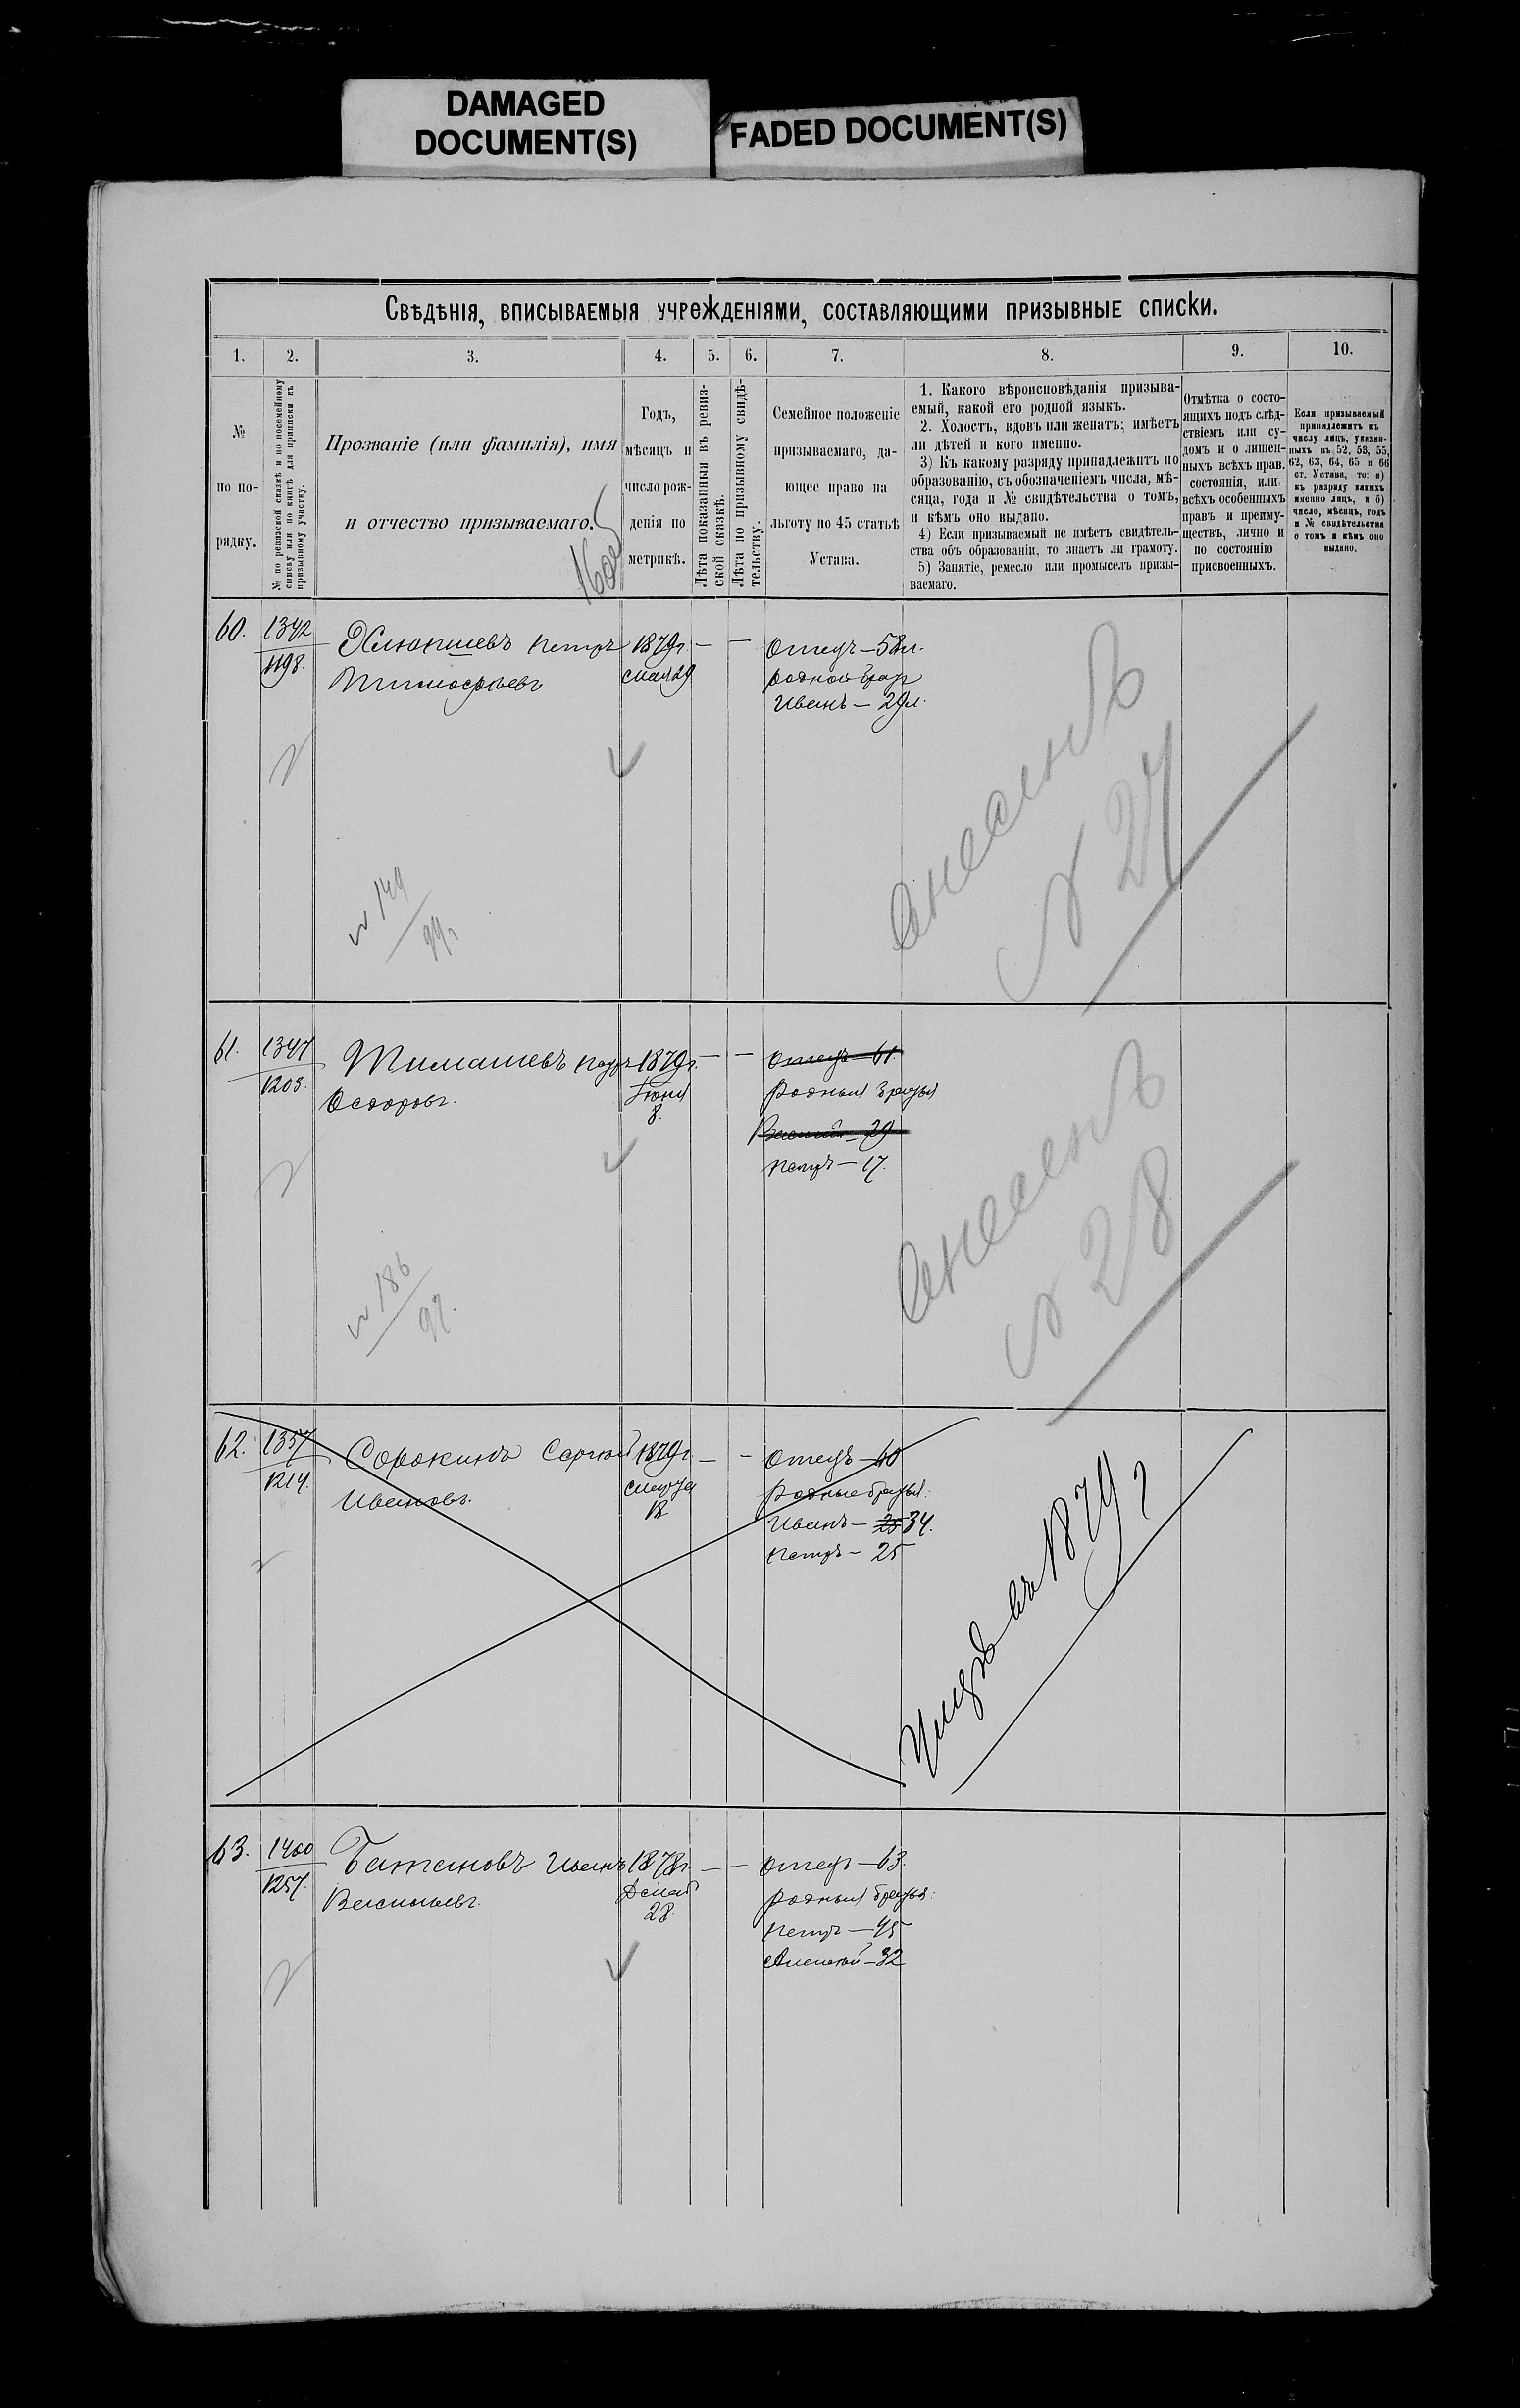 DAMAGED
DOCUMENT(S)
FADED DOCUMENT(S)
Свѣдѣнія, вписываемыя учрежденіями, составляющими призывные списки.
1. 2. 3. 4. 5. 6. 7. 8. 9. 10.
№
по по-
рядку.
№ по ревизской сказкѣ и по посемейному
списку или по книгѣ для приписки къ
призывному участку.
Прозваніе (или фамилія), имя
и отчество призываемаго.
Годъ,
мѣсяцъ и
число рож-
денія по
метрикѣ.
Лѣта показанныя въ ревиз-
ской сказкѣ.
Лѣта по призывному свидѣ-
тельству.
Семейное положеніе
призываемаго, да-
ющее право на
льготу по 45 статьѣ
Устава.
1. Какого вѣроисповѣданія призыва-
емый, какой его родной языкъ.
2. Холостъ, вдовъ или женатъ; имѣетъ
ли дѣтей и кого именно.
3) Къ какому разряду принадлежитъ по
образованію, съ обозначеніемъ числа, мѣ-
сяца, года и № свидѣтельства о томъ,
и кѣмъ оно выдано.
4) Если призываемый не имѣетъ свидѣтель-
ства объ образованіи, то знаетъ ли грамоту.
5) Занятіе, ремесло или промыселъ призы-
ваемаго.
Отмѣтка о состо-
ящихъ подъ слѣд-
ствіемъ или су-
домъ и о лишен-
ныхъ всѣхъ прав.
состоянія, или
всѣхъ особенныхъ
правъ и преиму-
ществъ, лично и
по состоянію
присвоенныхъ.
Если призываемый
принадлежитъ къ
числу лицъ, указан-
ныхъ въ 52, 53, 55,
62, 63, 64, 65 и 66
ст. Устава, то: а)
къ разряду какихъ
именно лицъ, и б)
число, мѣсяцъ, годъ
и № свидѣтельства
о томъ и кѣмъ оно
выдано.
60. 1342 Петръ 1879г. — — Отецъ — 58л.
1198. Тимофеевъ мая 29 родной братъ
Иванъ — 29л.
№ 149
99г
внесенъ
№ 27
61. 1347 Тимашевъ 1879г. — — Отецъ — 61.
1203. Федоровъ. Іюня родныя братья
8. Василій — 29
Петръ — 17.
№ 186
97.
внесенъ
№ 28
62. 1357 Сорокинъ Сергѣй 1879г. — — Отецъ — 60
1214. Ивановъ. марта родные братья:
18 Иванъ — 25 34.
Петръ — 25
1879г
63. 1400 Батановъ Иванъ 1878г. — — Отецъ — 63.
1257. Васильевъ. Декаб родныя братья:
28. Петръ — 45
Алексѣй — 32